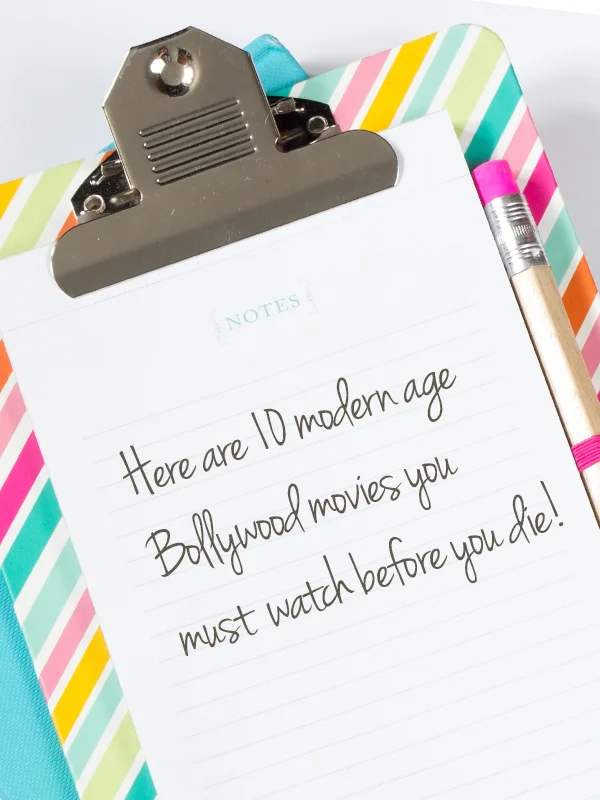 {NOTES}
Here are 10 modern age
Bollywood movies you
must watch before you die!